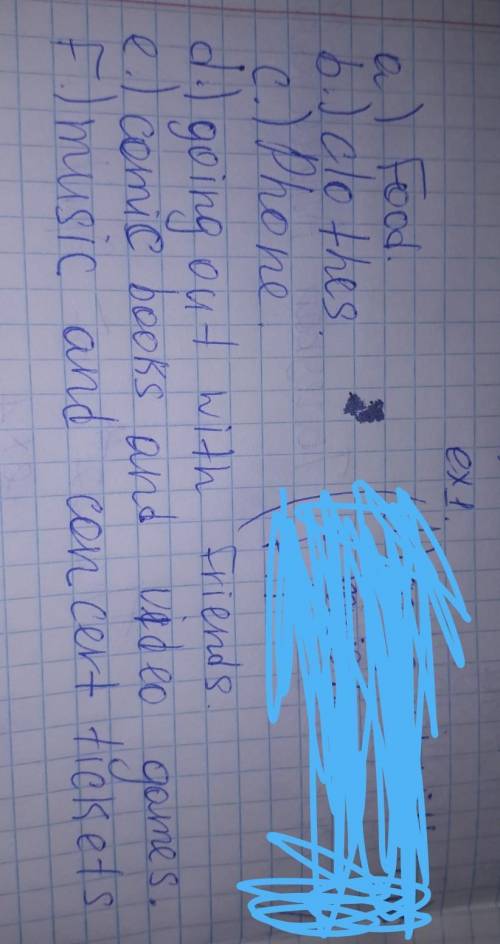 ex 1.
a.) Food.
b.) clothes.
c.) Phone.
d.) going out with friends.
e.) comic books and video games.
F.) music and concert tickets